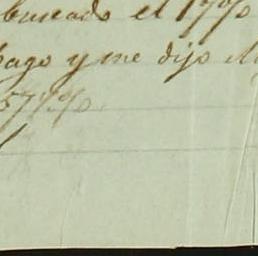 buscado el 17 %
pago y me dijo
57 %